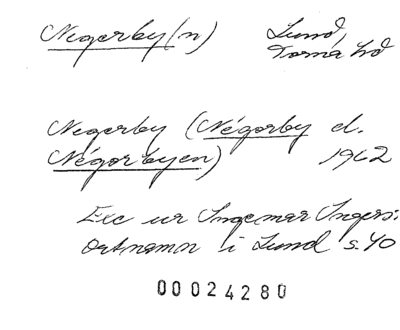 Negerby(n) Lund,
Torna hd
Negerby (Négerby el.
Négerbyen) 1962
Exc ur Ingemar Ingers:
Ortnamn i Lund s. 40
00024280